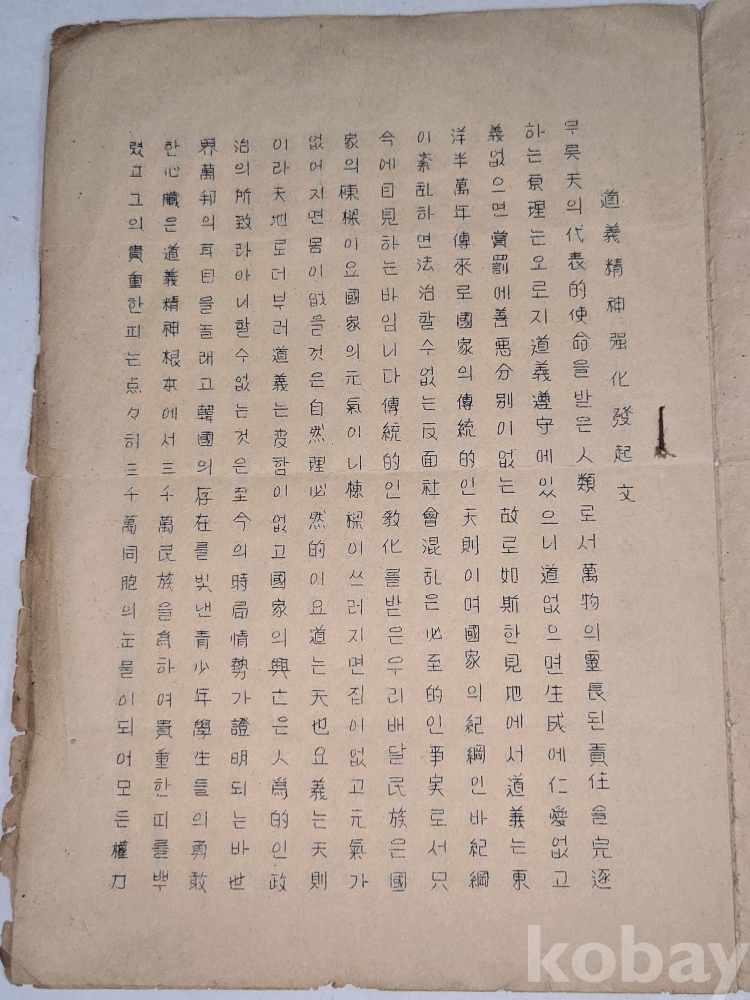 道義精神强化發起文
우昊天의代表的使命을받은人類로서萬物의靈長된責任을完逐
하는原理는오로지道義遵守에있으니道없으면生成에仁愛없고
義없으면賞罰에善悪分别이없는故로如斯한見地에서道義는東
洋半萬年傳來로國家의傳統的인天則이며國家의紀綱인바紀綱
이紊乱하면法治할수없는反面社會混乱은必至的인事実로서只
今에目見하는바입니다傳統的인敎化를받은우리배달民族은國
家의棟樑이요國家의元氣이니棟樑이쓰러지면집이없고元氣가
없어지면몸이없을것은自然理必然的이요道는天也요義는天則
이라天地로더부러道義는変함이없고國家의興亡은人爲的인政
治의所致라아니할수없는것은至今의時局情勢가證明되는바世
界萬邦의耳目을놀래고韓國의存在를빛낸青少年學生들의勇敢
한心臟은道義精神根本에서三千萬民族을爲하여貴重한피를뿌
렸고그의貴重한피는点々히三千萬同胞의눈물이되어모든權力
kobay